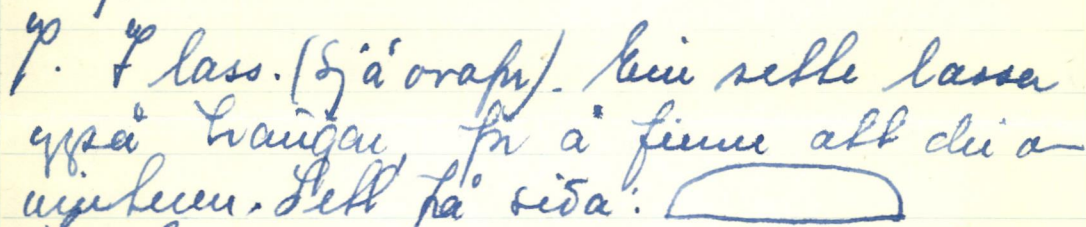 7. I lass. (Sjå ovafor). Ein sette lassa
uppå haugar, for å finne att dei om
vinteren. Sett på sida: